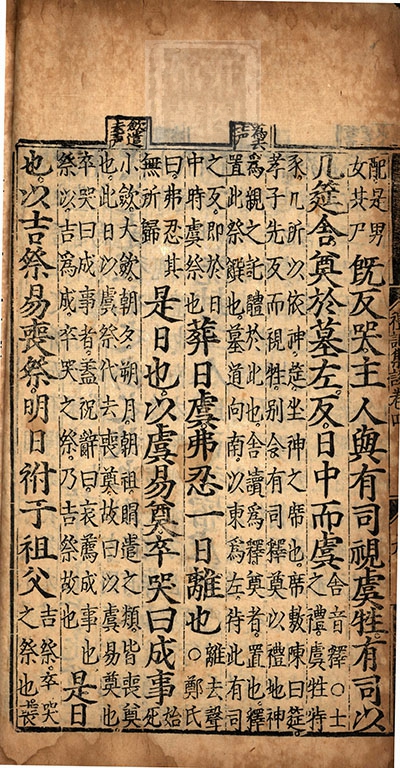 配是男
女共尸
既反哭主人與有司視虞牲有司以
几筵舍奠於墓左反日中而虞
舍音釋○士
之禮虞牲特
豕几所以依神筵坐神之席也席敷陳曰筵
孝子先反而視牲别令有司釋奠以禮地神
爲親之託體於此也舍讀爲釋奠者置也釋
置此祭饌也墓道向南以東爲左待此有司
之反即於日
中時虞祭也
葬日虞弗忍一日離也
離去聲
○鄭氏
曰弗忍其
無所歸
是日也以虞易奠卒哭曰成事
始
死
小歛大歛朝夕朔月朝祖賵遣之類皆喪奠
也此日以虞祭代去喪奠故曰以虞易奠也
卒哭曰成事者蓋祝辭曰哀薦成事也
祭以吉爲成卒哭之祭乃吉祭故也
是日
也以吉祭易喪祭明日祔于祖父
吉祭卒哭
之祭也喪